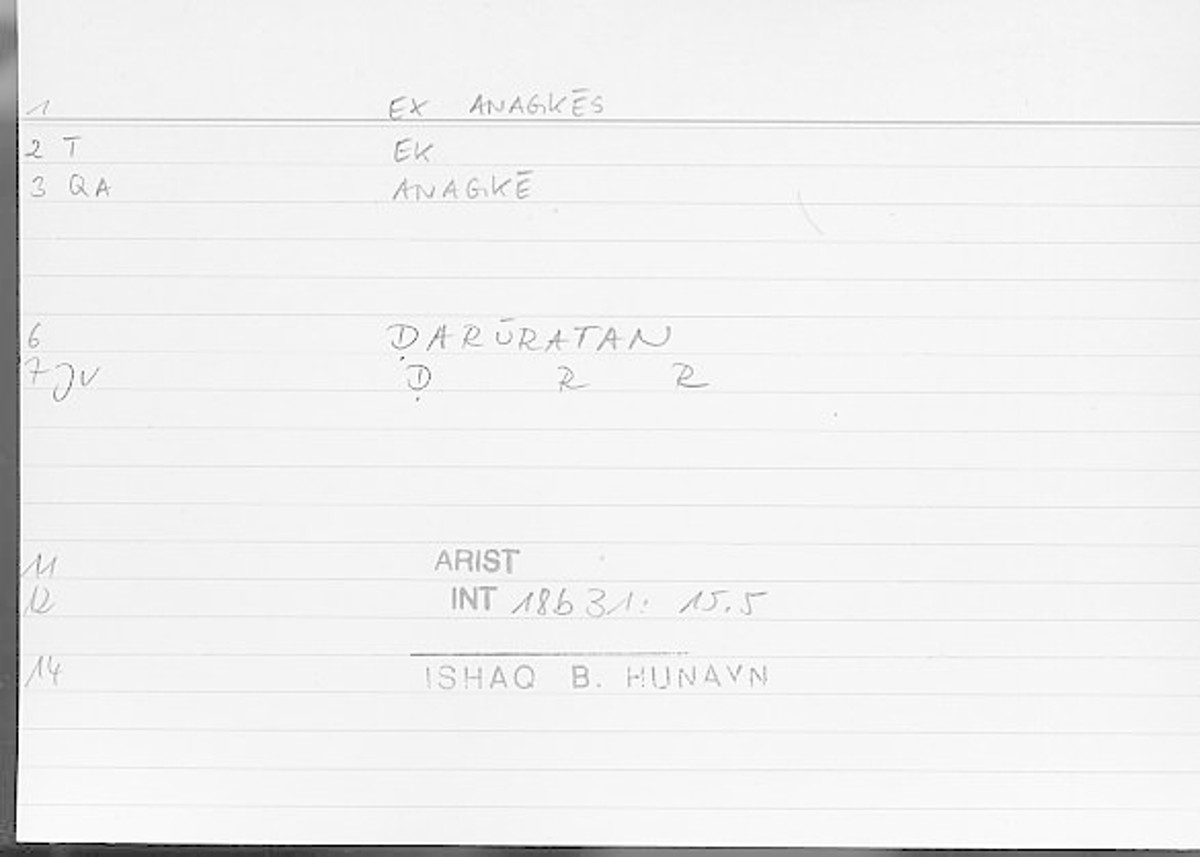 1 EX ANAGKĒS
2 T EK
3 QA ANAGKĒ
6 ḌARŪRATAN
7 JV Ḍ R R
11 ARIST
12 INT 18b 31: 15.5
14 ISHAQ B. HUNAYN